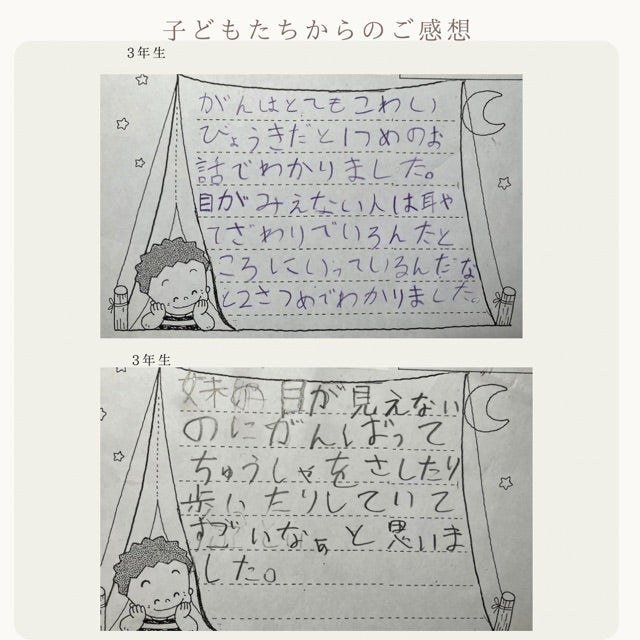 子どもたちからのご感想
3年生
がんはとてもこわい
びょうきだと1つめのお
話でわかりました。
目がみえない人は耳や
てざわりでいろんなと
ころにいっているんだな
と2さつめでわかりました。
3年生
妹 目が見えない
のにがんばって
ちゅうしゃをさしたり
歩いたりしていて
すごいなぁと思いま
した。